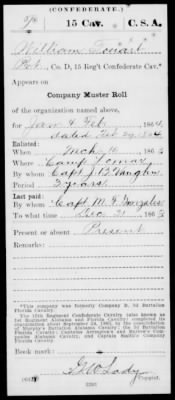 (CONFEDERATE.)
15 Cav. C.S.A.
William
Pvt., Co. D, 15 Reg't Confederate Cav.*
Appears on
Company Muster Roll
of the organization named above,
for Jan & Feb, 1864.
dated Feb 29, 1864
Enlisted:
When Mch 16, 186
Where Camp Tomax
By whom Capt J. B. Vaughn
Period 3 years
Last paid:
By whom Capt M. F. Gonzales
To what time Dec 31, 186
Present or absent Present
Remarks:
*This company was formerly Company B, 3d Battalion
Florida Cavalry.
The 15th Regiment Confederate Cavalry (also known as
1st Regiment Alabama and Florida Cavalry) completed its
organization about September 24, 1863, by the consolidation
of Murphy's Battalion Alabama Cavalry; the 3d Battalion
Florida Cavalry; Captains Arrington's and Barlow's Companies
Alabama Cavalry, and Captain Smith's Company
Florida Cavalry.
Book mark:
Copyist.